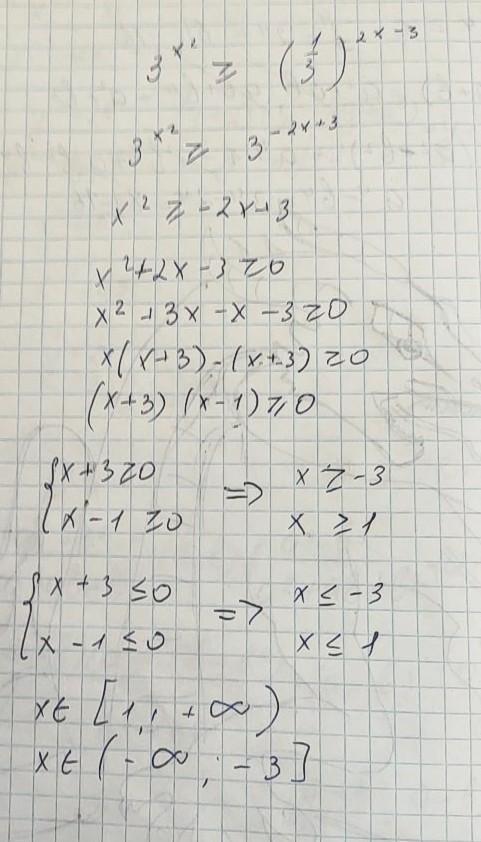 3^{x^2} ≥ (1/3)^{2x-3}
3^{x^2} ≥ 3^{-2x+3}
x² ≥ -2x+3
x²+2x-3≥0
x²+3x-x-3≥0
x(x+3)-(x+3)≥0
(x+3)(x-1)≥0
{x+3≥0 => x≥-3
x-1≥0 x≥1
{x+3≤0 => x≤-3
x-1≤0 x≤1
x∈[1; +∞)
x∈(-∞; -3]